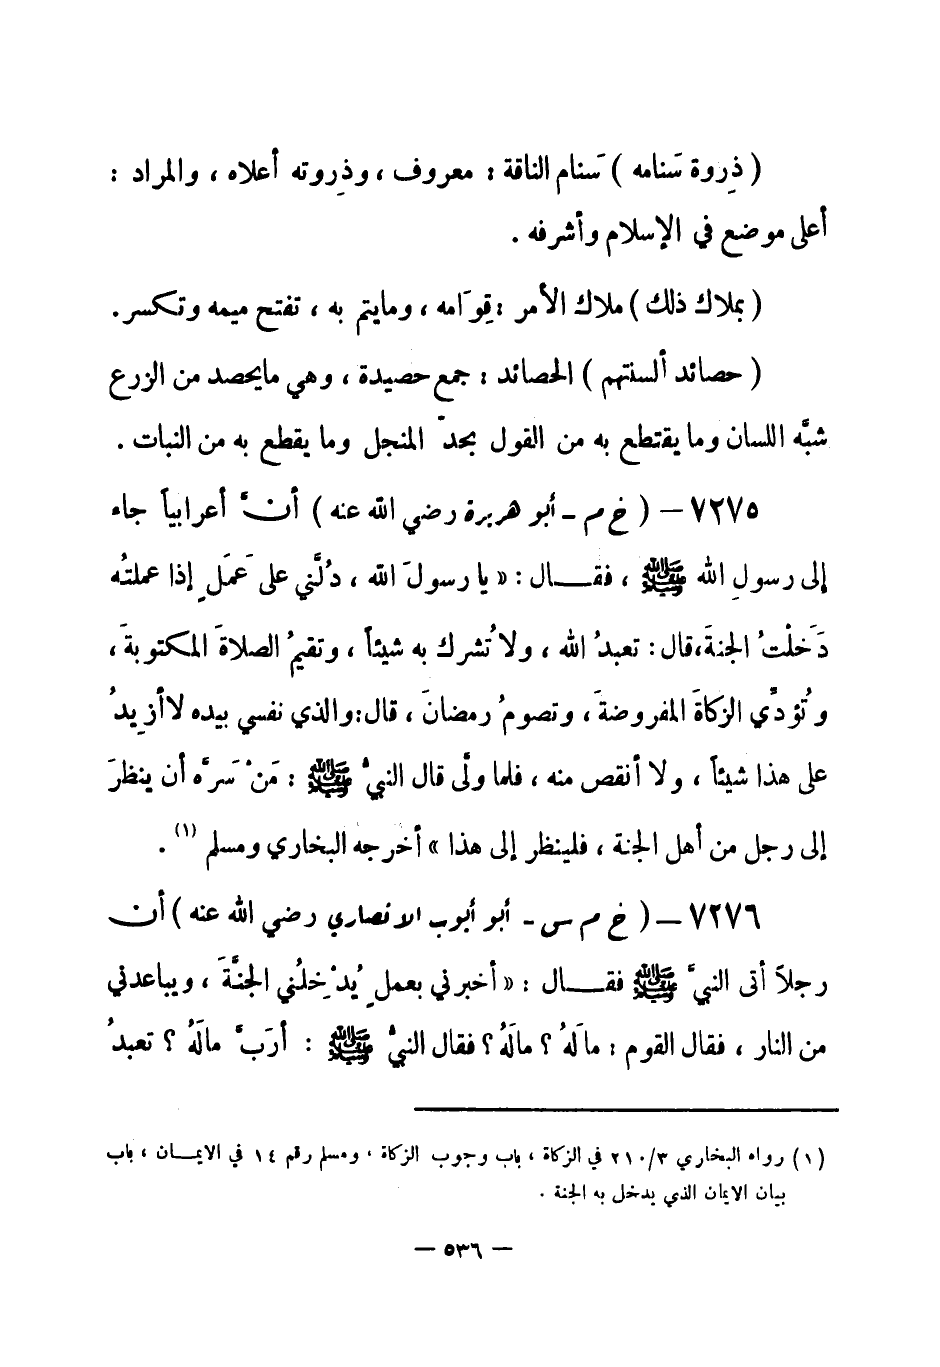 ( ذِروة سَنامه ) سَنام الناقة : معروف ، وذِروته أعلاه ، والمراد :
أعلى موضع في الإسلام وأشرفه .
( بملاك ذلك ) ملاك الأمر : قِوَامه ، ومايتم به ، تفتح ميمه وتكسر .
( حصائد ألسنتهم ) الحصائد : جمع حصيدة ، وهي مايحصد من الزرع
شبَّه اللسان وما يقتطع به من القول بحدّ المنجل وما يقطع به من النبات .
٧٢٧٥ – ( خ م - أبو هريرة رضي الله عنه ) أنَّ أعرابياً جاء
إلى رسولِ الله ﷺ ، فقـــال : « يا رسولَ الله ، دُلَّني على عَمَلٍ إذا عملتُه
دَخلْتُ الجنةَ، قال : تعبدُ الله ، ولا تُشرك به شيئاً ، وتقيمُ الصلاةَ المكتوبةَ ،
وتُؤدِّي الزكاةَ المفروضةَ ، وتصومُ رمضانَ ، قال: والذي نفسي بيده لاأزيدُ
على هذا شيئاً ، ولا أنقص منه ، فلما ولَّى قال النبيُّ ﷺ : مَنْ سَرَّه أن ينظرَ
إلى رجل من أهل الجنة ، فلينظر إلى هذا » أخرجه البخاري ومسلم (١) .
٧٢٧٦ – ( خ م س - أبو أيوب الانصاري رضي الله عنه ) أن
رجلاً أتى النبيَّ ﷺ فقـــال : « أخبرني بعملٍ يُدْخِلُني الجنَّةَ ، ويباعدني
من النار ، فقال القوم : مالَهُ ؟ مالَهُ ؟ فقال النبيُّ ﷺ : أرَبٌ مالَهُ ؟ تعبدُ
(١) رواه البخاري ٣/٢١٠ في الزكاة ، باب وجوب الزكاة ، ومسلم رقم ١٤ في الايمـــان ، باب
بيان الايمان الذي يدخل به الجنة .
— ٥٣٦ —